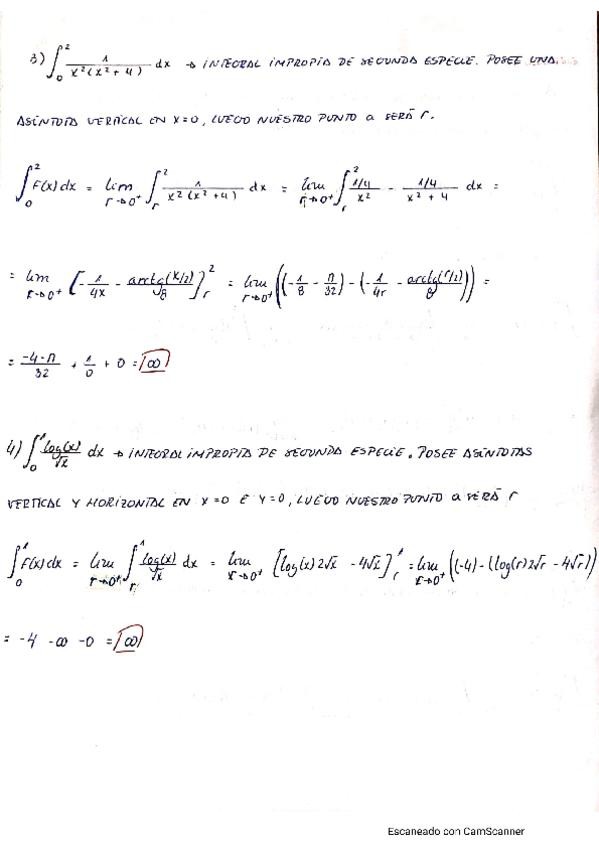 3) ∫₀² 1/(x²(x²+4)) dx → INTEGRAL IMPROPIA DE SEGUNDA ESPECIE. POSEE UNA
ASÍNTOTA VERTICAL EN X=0, LUEGO NUESTRO PUNTO a SERÁ r.
∫₀² F(x) dx = lim r→0⁺ ∫ᵣ² 1/(x²(x²+4)) dx = lim r→0⁺ ∫ᵣ² (1/4)/x² - (1/4)/(x²+4) dx =
= lim r→0⁺ [-1/(4x) - arctg(x/2)/8]ᵣ² = lim r→0⁺ ((-1/8 - π/32) - (-1/(4r) - arctg(r/2)/8)) =
= (-4-π)/32 + 1/0 + 0 = ∞
4) ∫₀¹ log(x)/√x dx → INTEGRAL IMPROPIA DE SEGUNDA ESPECIE. POSEE ASÍNTOTAS
VERTICAL Y HORIZONTAL EN X=0 E Y=0, LUEGO NUESTRO PUNTO a SERÁ r
∫₀¹ F(x) dx = lim r→0⁺ ∫ᵣ¹ log(x)/√x dx = lim r→0⁺ [log(x)2√x - 4√x]ᵣ¹ = lim r→0⁺ ((-4) - (log(r)2√r - 4√r))
= -4 -∞ -0 = ∞
Escaneado con CamScanner